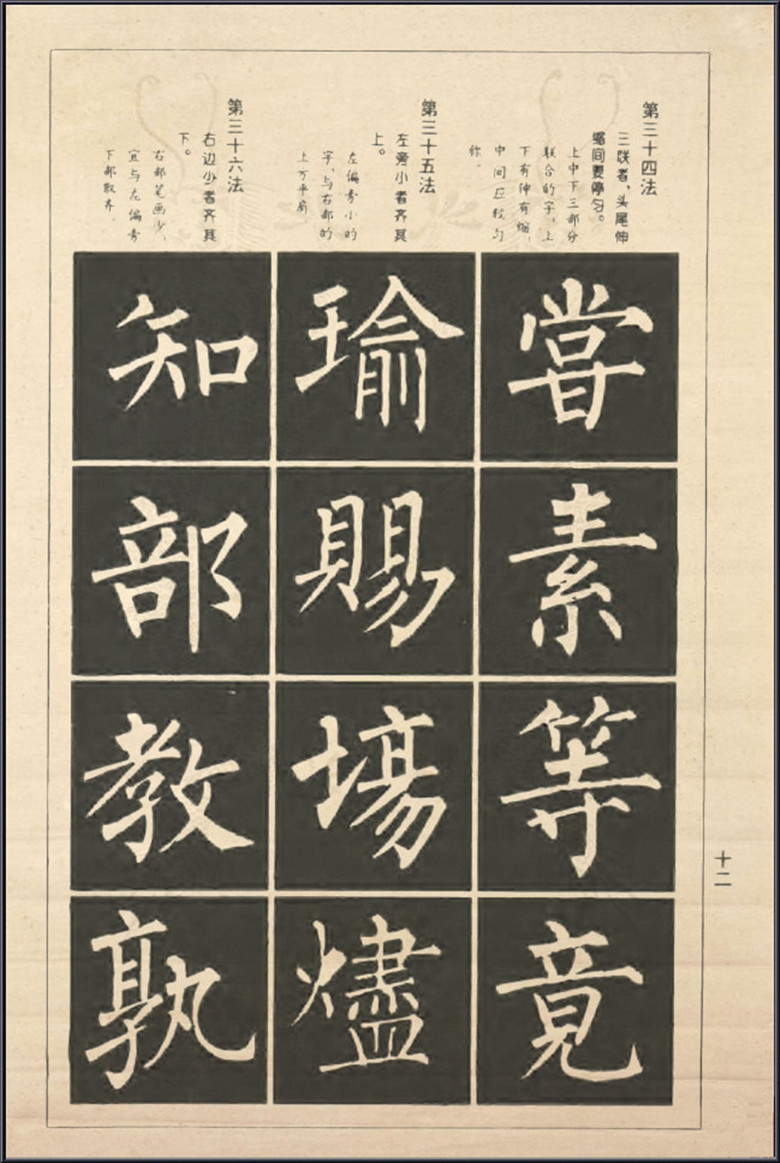 第三十四法
三联者，头尾伸
缩间要停匀。
上中下三部分
联合的字，上
下有伸有缩，
中间应较匀
称。
甞
素
等
竟
第三十五法
左旁小者齐其
上。
左偏旁小的
字，与右部的
上方平肩
瑜
賜
塲
燼
第三十六法
右边少者齐其
下。
右部笔画少，
宜与左偏旁
下部取齐．
知
部
教
孰
十二